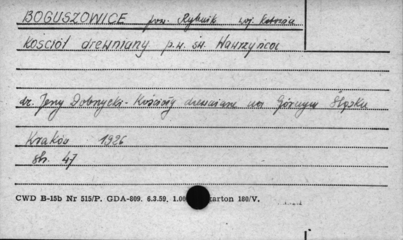 BOGUSZOWICE pow. Rybnik woj. Katowice
Kościół drewniany p.w. św. Wawrzyńca
dr. Jerzy Dobrzycki - Kościoły drewniane na Górnym Śląsku
Kraków 1926
str. 47
CWD B-15b Nr 515/P. GDA-609. 6.3.59. 1.00 karton 180/V.